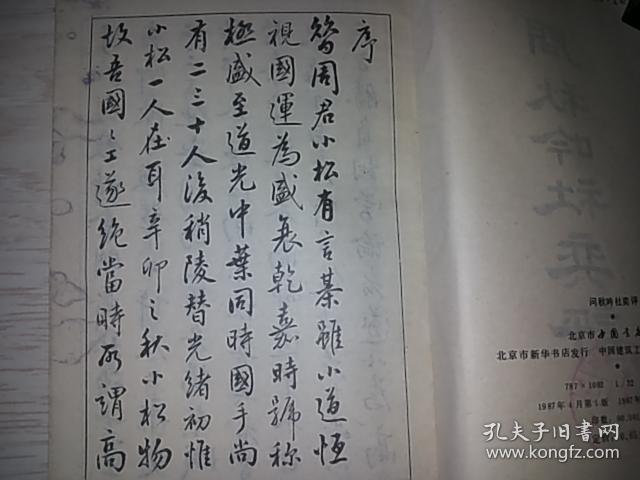 序
周君小松有言棊雖小道恒
視國運為盛衰乾嘉時號称
極盛至道光中葉同時國手尚
有二三十人後稍陵替光緒初惟
小松一人在耳辛卯之秋小松物
故吾國〻工遂絶當時所謂高
秋吟社
问秋吟社弈评
北京市中国书
北京市新华书店发行 中国建筑工
787×1092 1/32
1987年4月第1版 1987年
印数
孔夫子旧书网